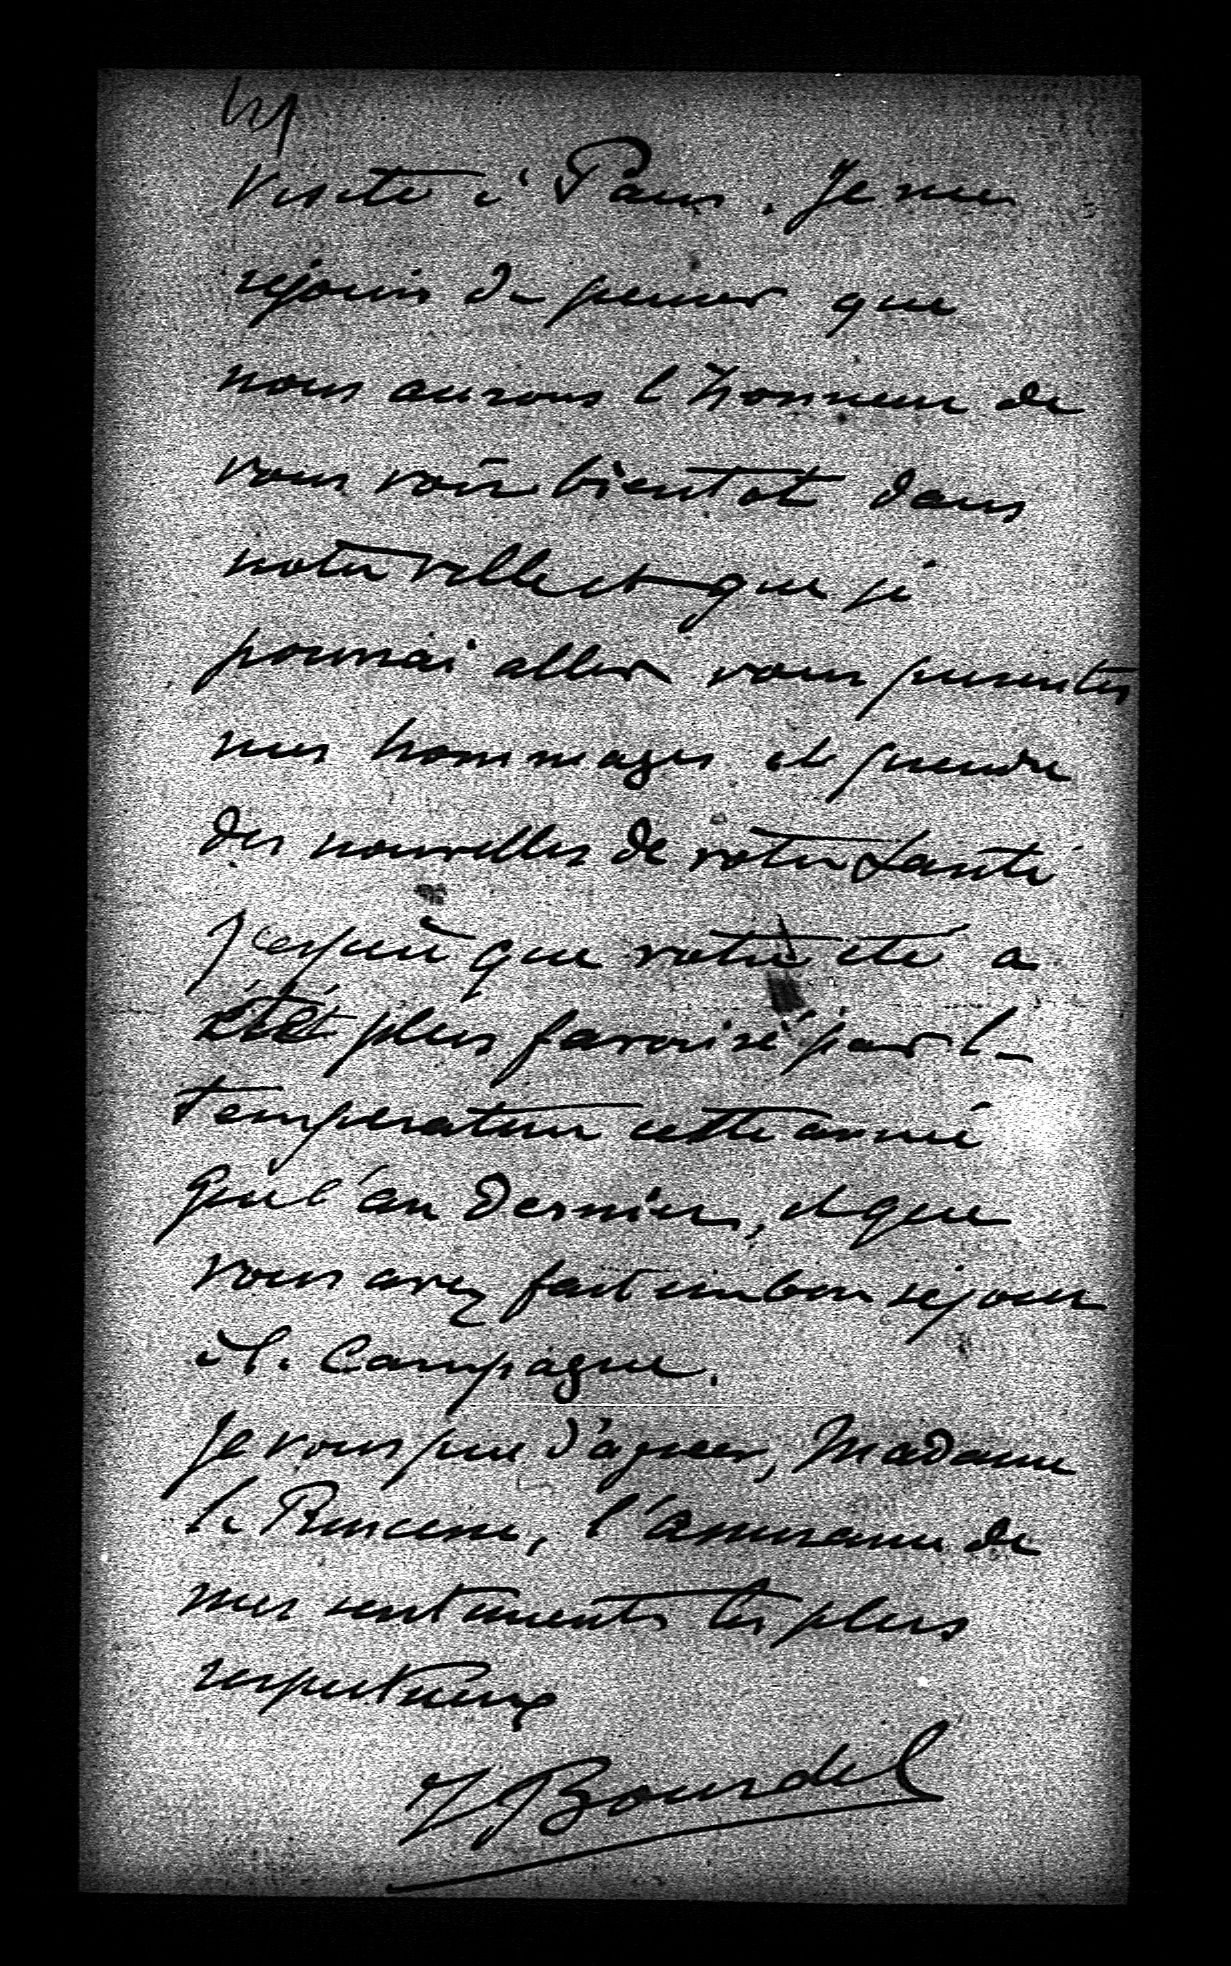 visite à Paris. Je me
réjouis de penser que
nous aurons l'honneur de
vous voir bientot dans
notre ville et que je
pourrai aller vous presenter
mes hommages et prendre
des nouvelles de votre santé
J'espère que votre été a
été plus favorisé par la
temperature cette année
que l'an dernier, et que
vous avez fait un bon séjour
à la Campagne.
Je vous prie d'agréer, Madame
la Princesse, l'assurance de
mes sentiments les plus
respectueux
J Bourdel